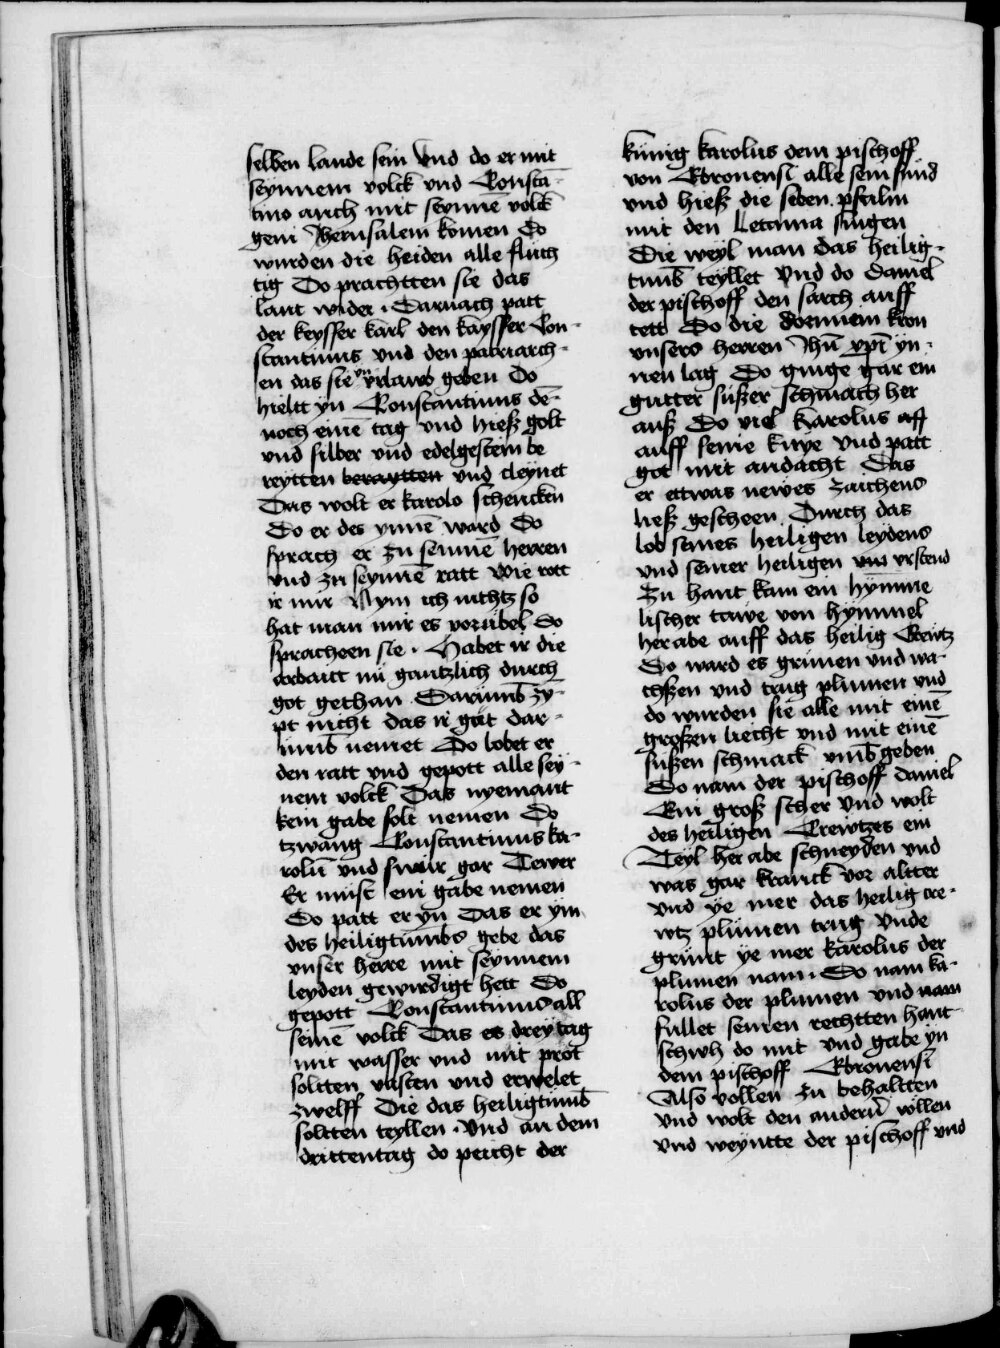 selben lande sein Und do er mit
seynnem volck vnd Constā-
tino auch mit seynnē volck
gein Iherusalem komen Do
wurden die heiden alle fluch
tig Do prachtten sie das
lant wider. Darnach patt
der keysser karl den kaysser Con-
stantinus vnd den patriarch-
en das sie yn vrlawb geben Do
hieltt yn Constantinus de-
noch eine tag vnd hieß golt
vnd silber vnd edelgestein be
reytten beraytten vnd cleynet
Das wolt er karolo schencken
Do er des ynnē ward Do
sprach er zu seinnē herren
vnd zu seynnē ratt wie rott
ir mir Nym ich nichtz so
hat man mir es vor übel Do
spracheen sie. Habet ir die
arbaitt nü gantzlich durch
got gethan Darümb zy-
pt nicht das ir güt dar-
ümb nemet Do lobet er
den ratt vnd gepott alle sey-
nem volck Das nyemant
kein gabe solt nemen Do
tzwang Constantinus ka-
rolū vnd swür gar Tewer
Er müst ein gabe nemen
Do patt er yn Das er ym
des heiligtumbs gebe das
vnser herre mit seynnem
leyden gewirdigt hett Do
gepott Constantinus all
seinē volck Das es drey tag
mit wasser vnd mit prot
soltten vasten vnd erwelet
zwelff Die das heiligtümb
soltten teyllen. Vnd an dem
drittentag do peicht der
künig karolus dem pischoff
von Ebronensi alle sein sünd
vnd hieß die seben psalm
mit den Letania singen
Die weyl man das heilig-
tumb teyllet Vnd do daniel
der pischoff den sarch auff
tett Do die doernnein kron
vnsers herren Ihū xpī yn-
nen lag Do ginge gar ein
gutter süßer schmach her
auß Do viel karolus aff
auff seine knye vnd patt
got mit andacht Das
er ettwas newes zaichens
ließ gescheen Durch das
lob seines heiligen leydens
vnd seiner heiligen vrstend
Zu hant kam ein hymme
lischer tawe von hymmel
herabe auff das heilig Crewtz
Do ward es grünen vnd wa-
chßen vnd trug plumen vnd
do wurden sie alle mit einē
großen liecht vnd mit einē
süßen schmack vmbgeben
Do nam der pischoff daniel
Ein groß scher vnd wolt
des heiligen Crewtzes ein
Teyl her abe schneyden vnd
was gar kranck vor altter
vnd ye mer das heilig cre-
wtz plümen trug Vnde
grünt ye mer karolus der
plumen nam. Do nam ka-
rolus der plumen vnd nam
füllet seinen rechtten hant
schwh do mit vnd gabe yn
dem pischoff Ebronensi
Also vollen zu behaltten
vnd wolt den andern vollen
vnd weyntte der pischoff vnd